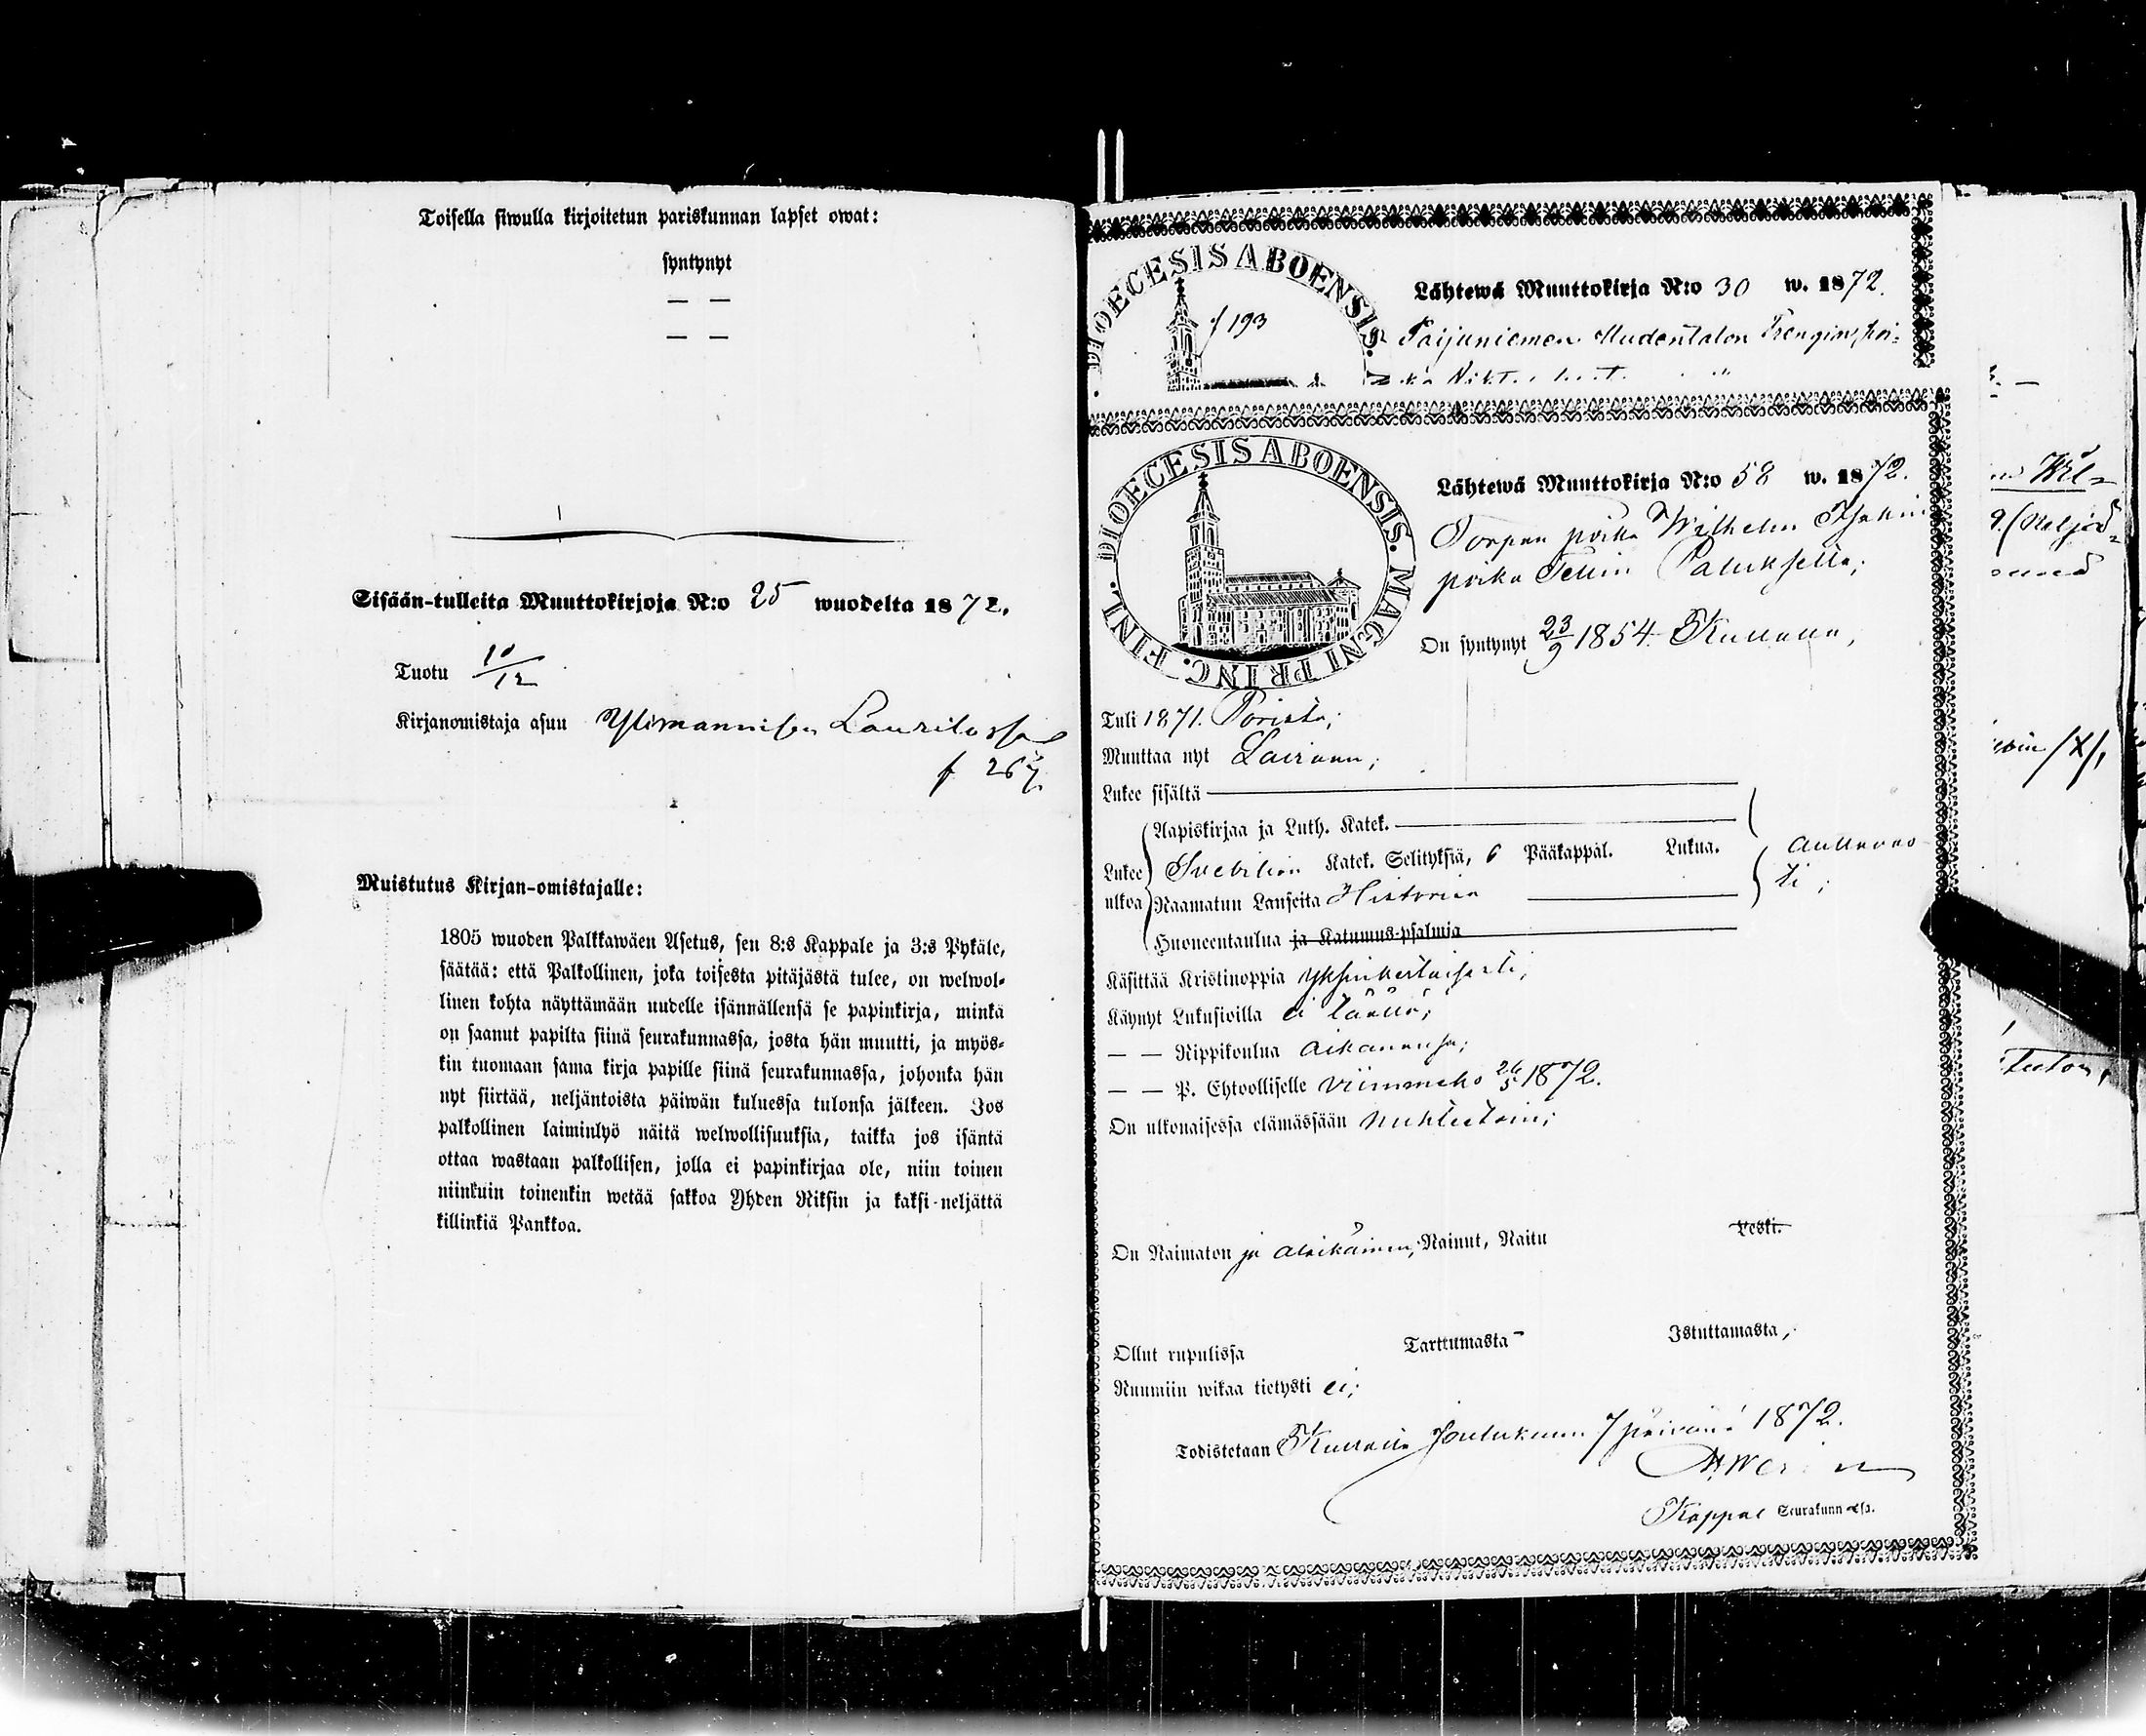 Toisella siwulla kirjoitetun pariskunnan lapset owat:
syntynyt
— —
— —
Sisään-tulleita Muuttokirjoja N:o 25 wuodelta 1872.
Tuotu 10/12
Kirjanomistaja asuu Ylimannisen Laurilassa
f 267.
Muistutus Kirjan-omistajalle:
1805 wuoden Palkkawäen Asetus, sen 8:s Kappale ja 3:s Pykäle,
säätää: että Palkollinen, joka toisesta pitäjästä tulee, on welwol-
linen kohta näyttämään uudelle isännällensä se papinkirja, minkä
on saanut papilta siinä seurakunnassa, josta hän muutti, ja myös-
kin tuomaan sama kirja papille siinä seurakunnassa, johonka hän
nyt siirtää, neljäntoista päiwän kuluessa tulonsa jälkeen. Jos
palkollinen laiminlyö näitä welwollisuuksia, taikka jos isäntä
ottaa wastaan palkollisen, jolla ei papinkirjaa ole, niin toinen
niinkuin toinenkin wetää sakkoa Yhden Riksin ja kaksi-neljättä
killinkiä Pankkoa.
DIOECESIS ABOENSIS.
f 193
Lähtewä Muuttokirja N:o 30 w. 1872.
Paijuniemen Uudentalon Trengin, poi-
DIOECESIS ABOENSIS. MAGNI PRINC. FINL.
Lähtewä Muuttokirja N:o 58 w. 1872.
Torpan poika Wilhelm
poika Tellin Palukselta;
On syntynyt 23/9 1854 Kullaan,
Tuli 1871. Porista;
Muuttaa nyt Laviaan;
Lukee sisältä
Aapiskirjaa ja Luth. Katek.
Lukee ulkoa
Svebilion Katek. Selityksiä, 6 Pääkappal. Lukua.
Raamatun Lauseita Historian
Huoneentaulua ja Katumus-psalmia
auttavas
ti;
Käsittää Kristinoppia yksinkertaisesti;
Käynyt Lukusioilla ei täällä;
— — Rippikoulua aikanansa;
— — P. Ehtoolliselle viimmeks 26/5 1872.
On ulkonaisessa elämässään nuhteetoin;
On Naimaton ja alaikäinen, Nainut, Naitu Leski.
Ollut rupulissa Tarttumasta Istuttamasta,
Ruumiin wikaa tietysti ei;
Todistetaan Kullaalla Joulukuun 7 päivänä 1872.
Kappal Seurakunnassa.